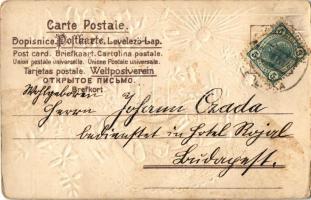 Carte Postale.
Dopisnice. Postkarte. Levelező-Lap.
Post card. Briefkaart. Cartolina postale.
Union postale universelle. Unione Postale universale.
Tarjetas postale. Weltpostverein
ОТКРЫТОЕ ПИСЬМО.
Brefkort
Wohlgeboren
Herrn Johann Czada
bedienstet in Hotel Rojal
Budapest.